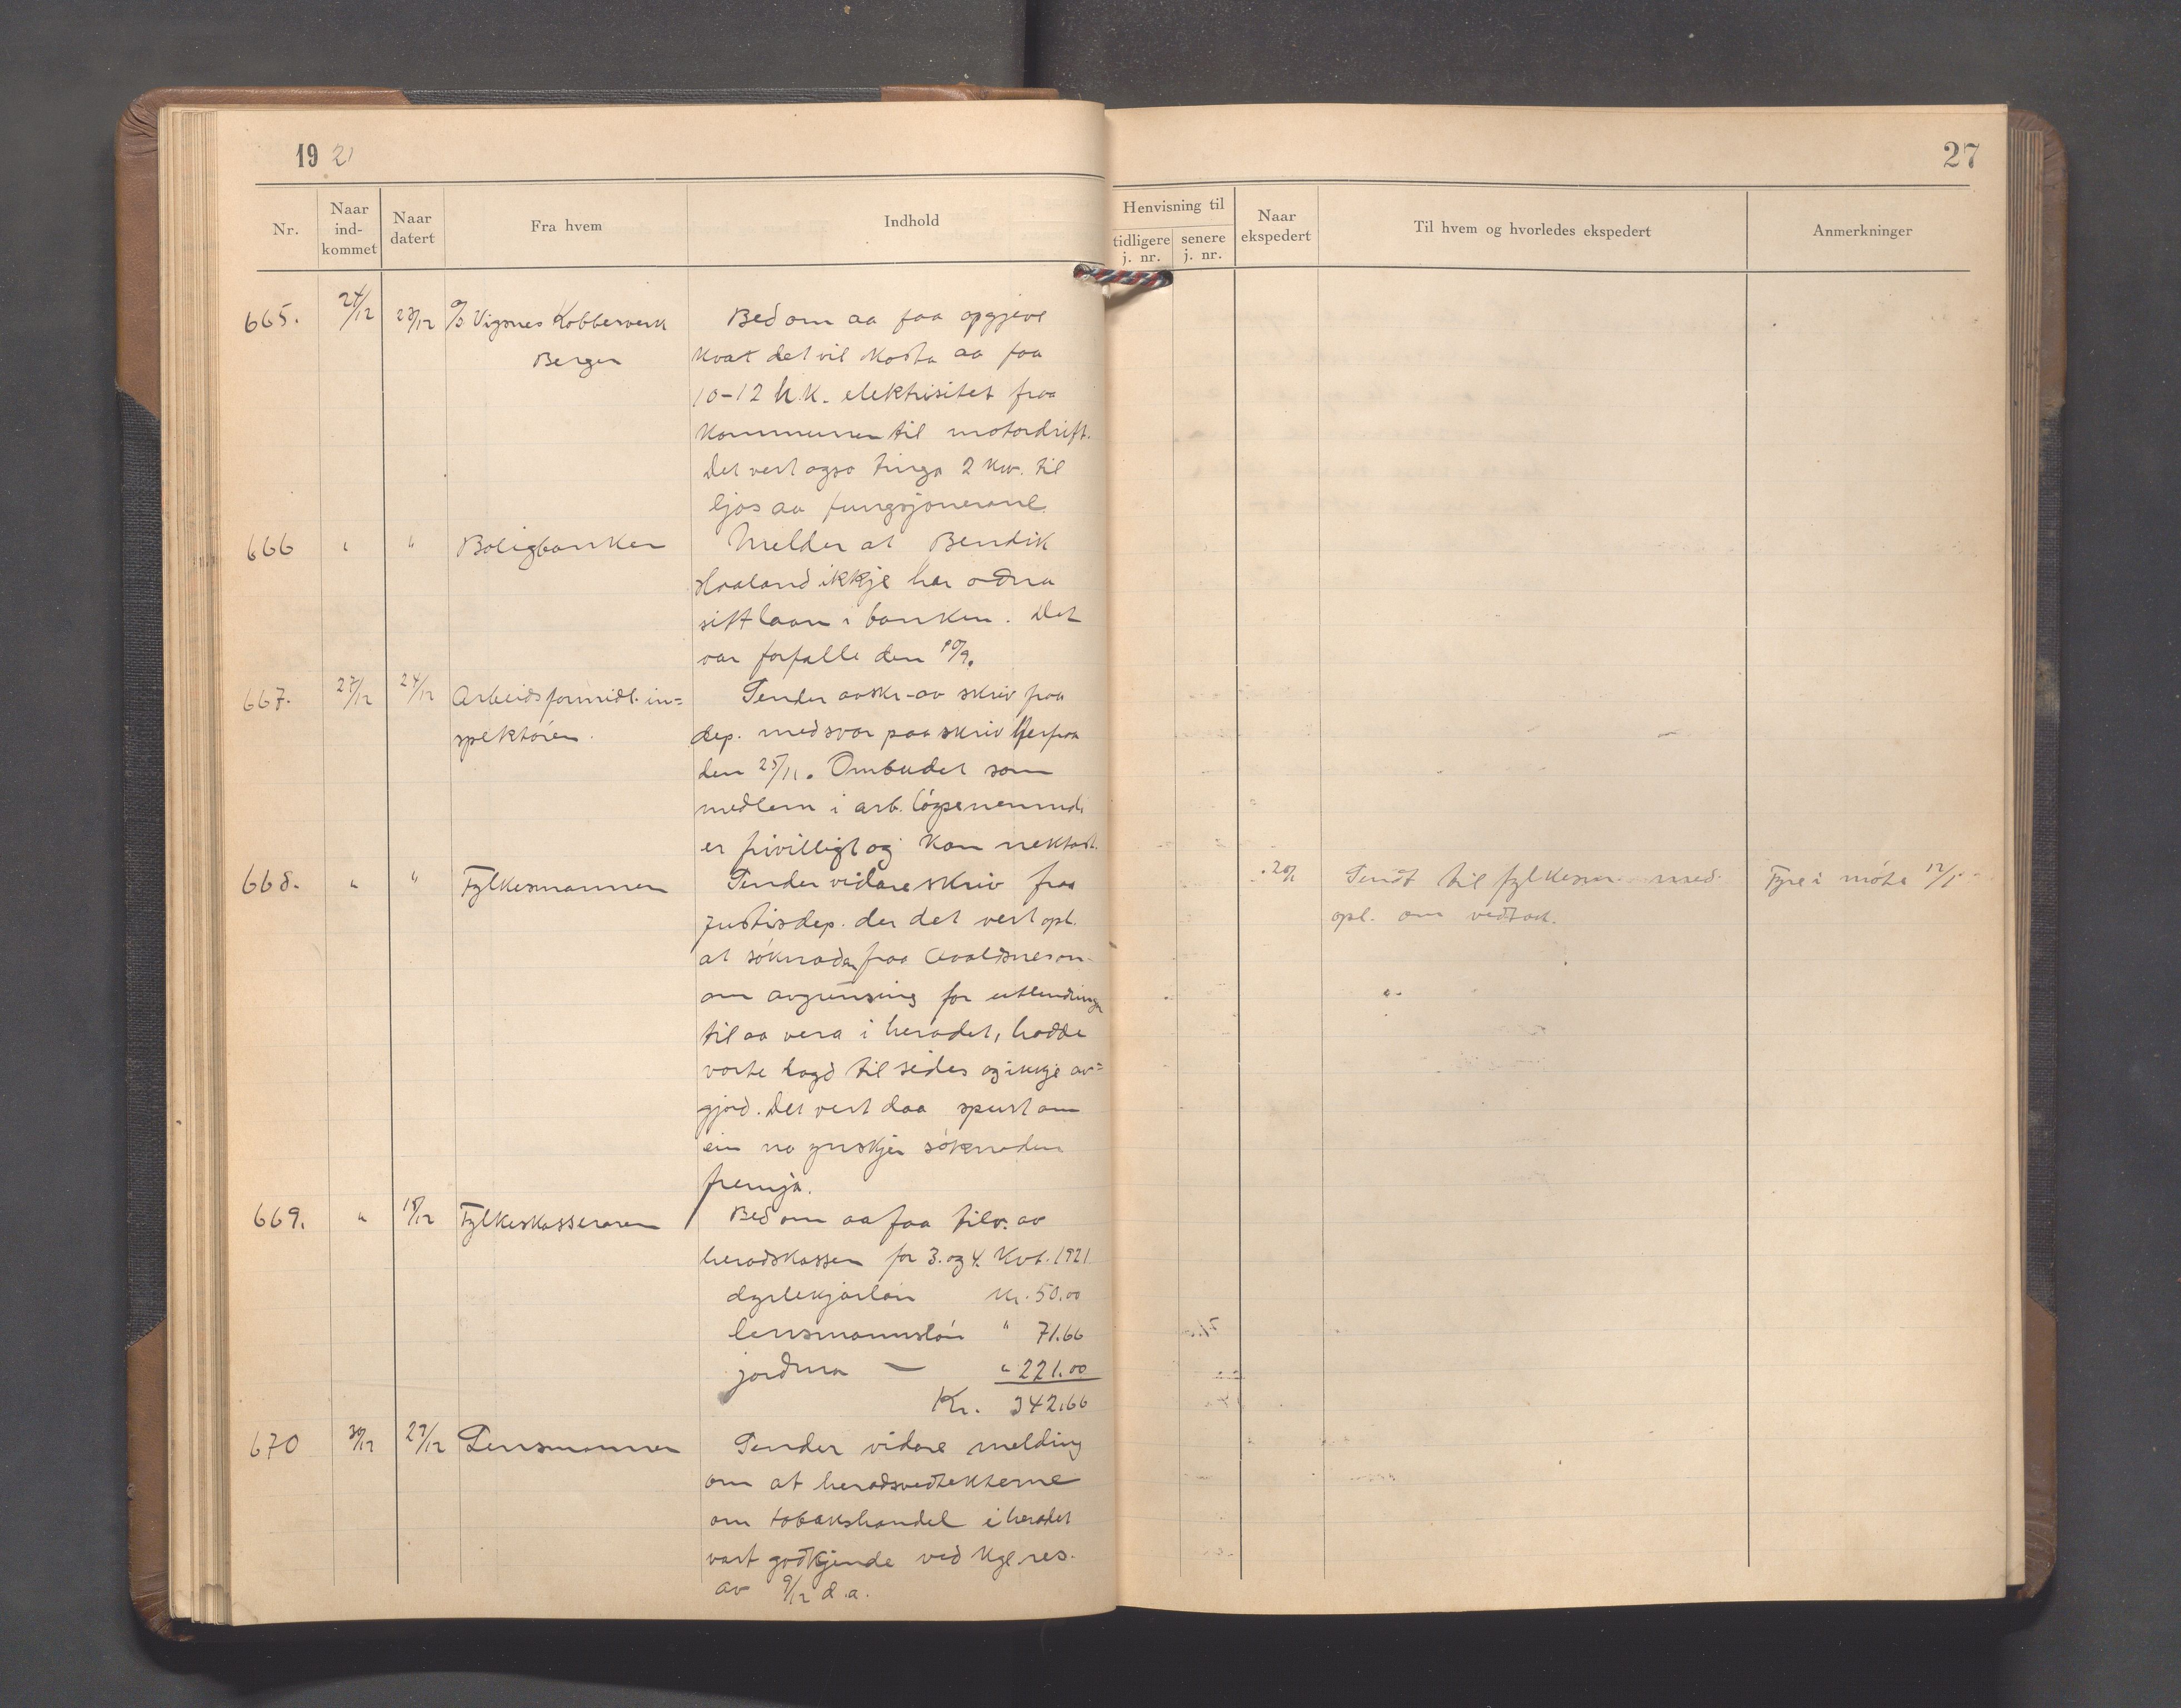 19 21
27
Nr.
Naar ind-kommet
Naar datert
Fra hvem
Indhold
Henvisning til
tidligere j. nr.
senere j. nr.
Naar ekspedert
Til hvem og hvorledes ekspedert
Anmerkninger
665. 24/12 23/12 A/S Vigsnes Kobberverk Bed om aa faa opgjeve
Bergen kvat det vil kosta aa faa
10-12 h.k. elektrisitet fraa
kommunen til motordrift.
Det vert ogso tinga 2 kw. til
ljos aa fungsjonerane.
666 " " Boligbanken Melder at Bendik
Haaland ikkje har odna
sitt laan i banken. Det
var forfalle den 10/9.
667. 27/12 24/12 Arbeidsformidl. in= Sender avskr. av skriv fraa
spektøren. dep. med svar paa skriv herfraa
den 25/11. Ombudet som
medlem i arb. løysenemnd
er frivilligt og kan nektast.
668. " " Fylkesmannen Sender vidare skriv fraa 20/1 Sendt til fylkesm. med Fyre i møte 12/1
Justisdep. der det vert opl. opl. om vedtak.
at søknaden fraa Avaldsnes
om avgrensing for utlendinga
til aa vera i heradet, hadde
vorte lagd til sides og ikkje av=
gjord. Det vert daa spurt om
ein no ynskjer søknaden
fremja.
669. " 18/12 Fylkeskasseraren Bed om aa faa tilv. av
heradskassen for 3. og 4. Kvt. 1921
dyrlækjarløn Kr. 50.00
lensmannsløn " 71.66
jordmo — " 221.00
Kr. 342,66
670 30/12 27/12 Lensmannen Sender vidare melding
om at heradsvedtekterne
om tobakshandel i heradet
vart godkjende ved kgl. res.
av 9/12 d.a.